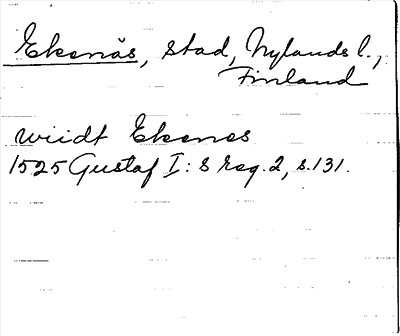 Ekenäs, stad, Nylands l.,
Finland
wiidt Ekenes
1525 Gustaf I:s reg. 2, s. 131.